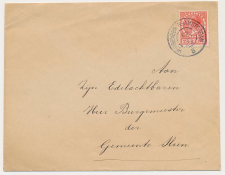 Aan
Zijn Edelachtbaren
Heer Burgemeester
der
Gemeente